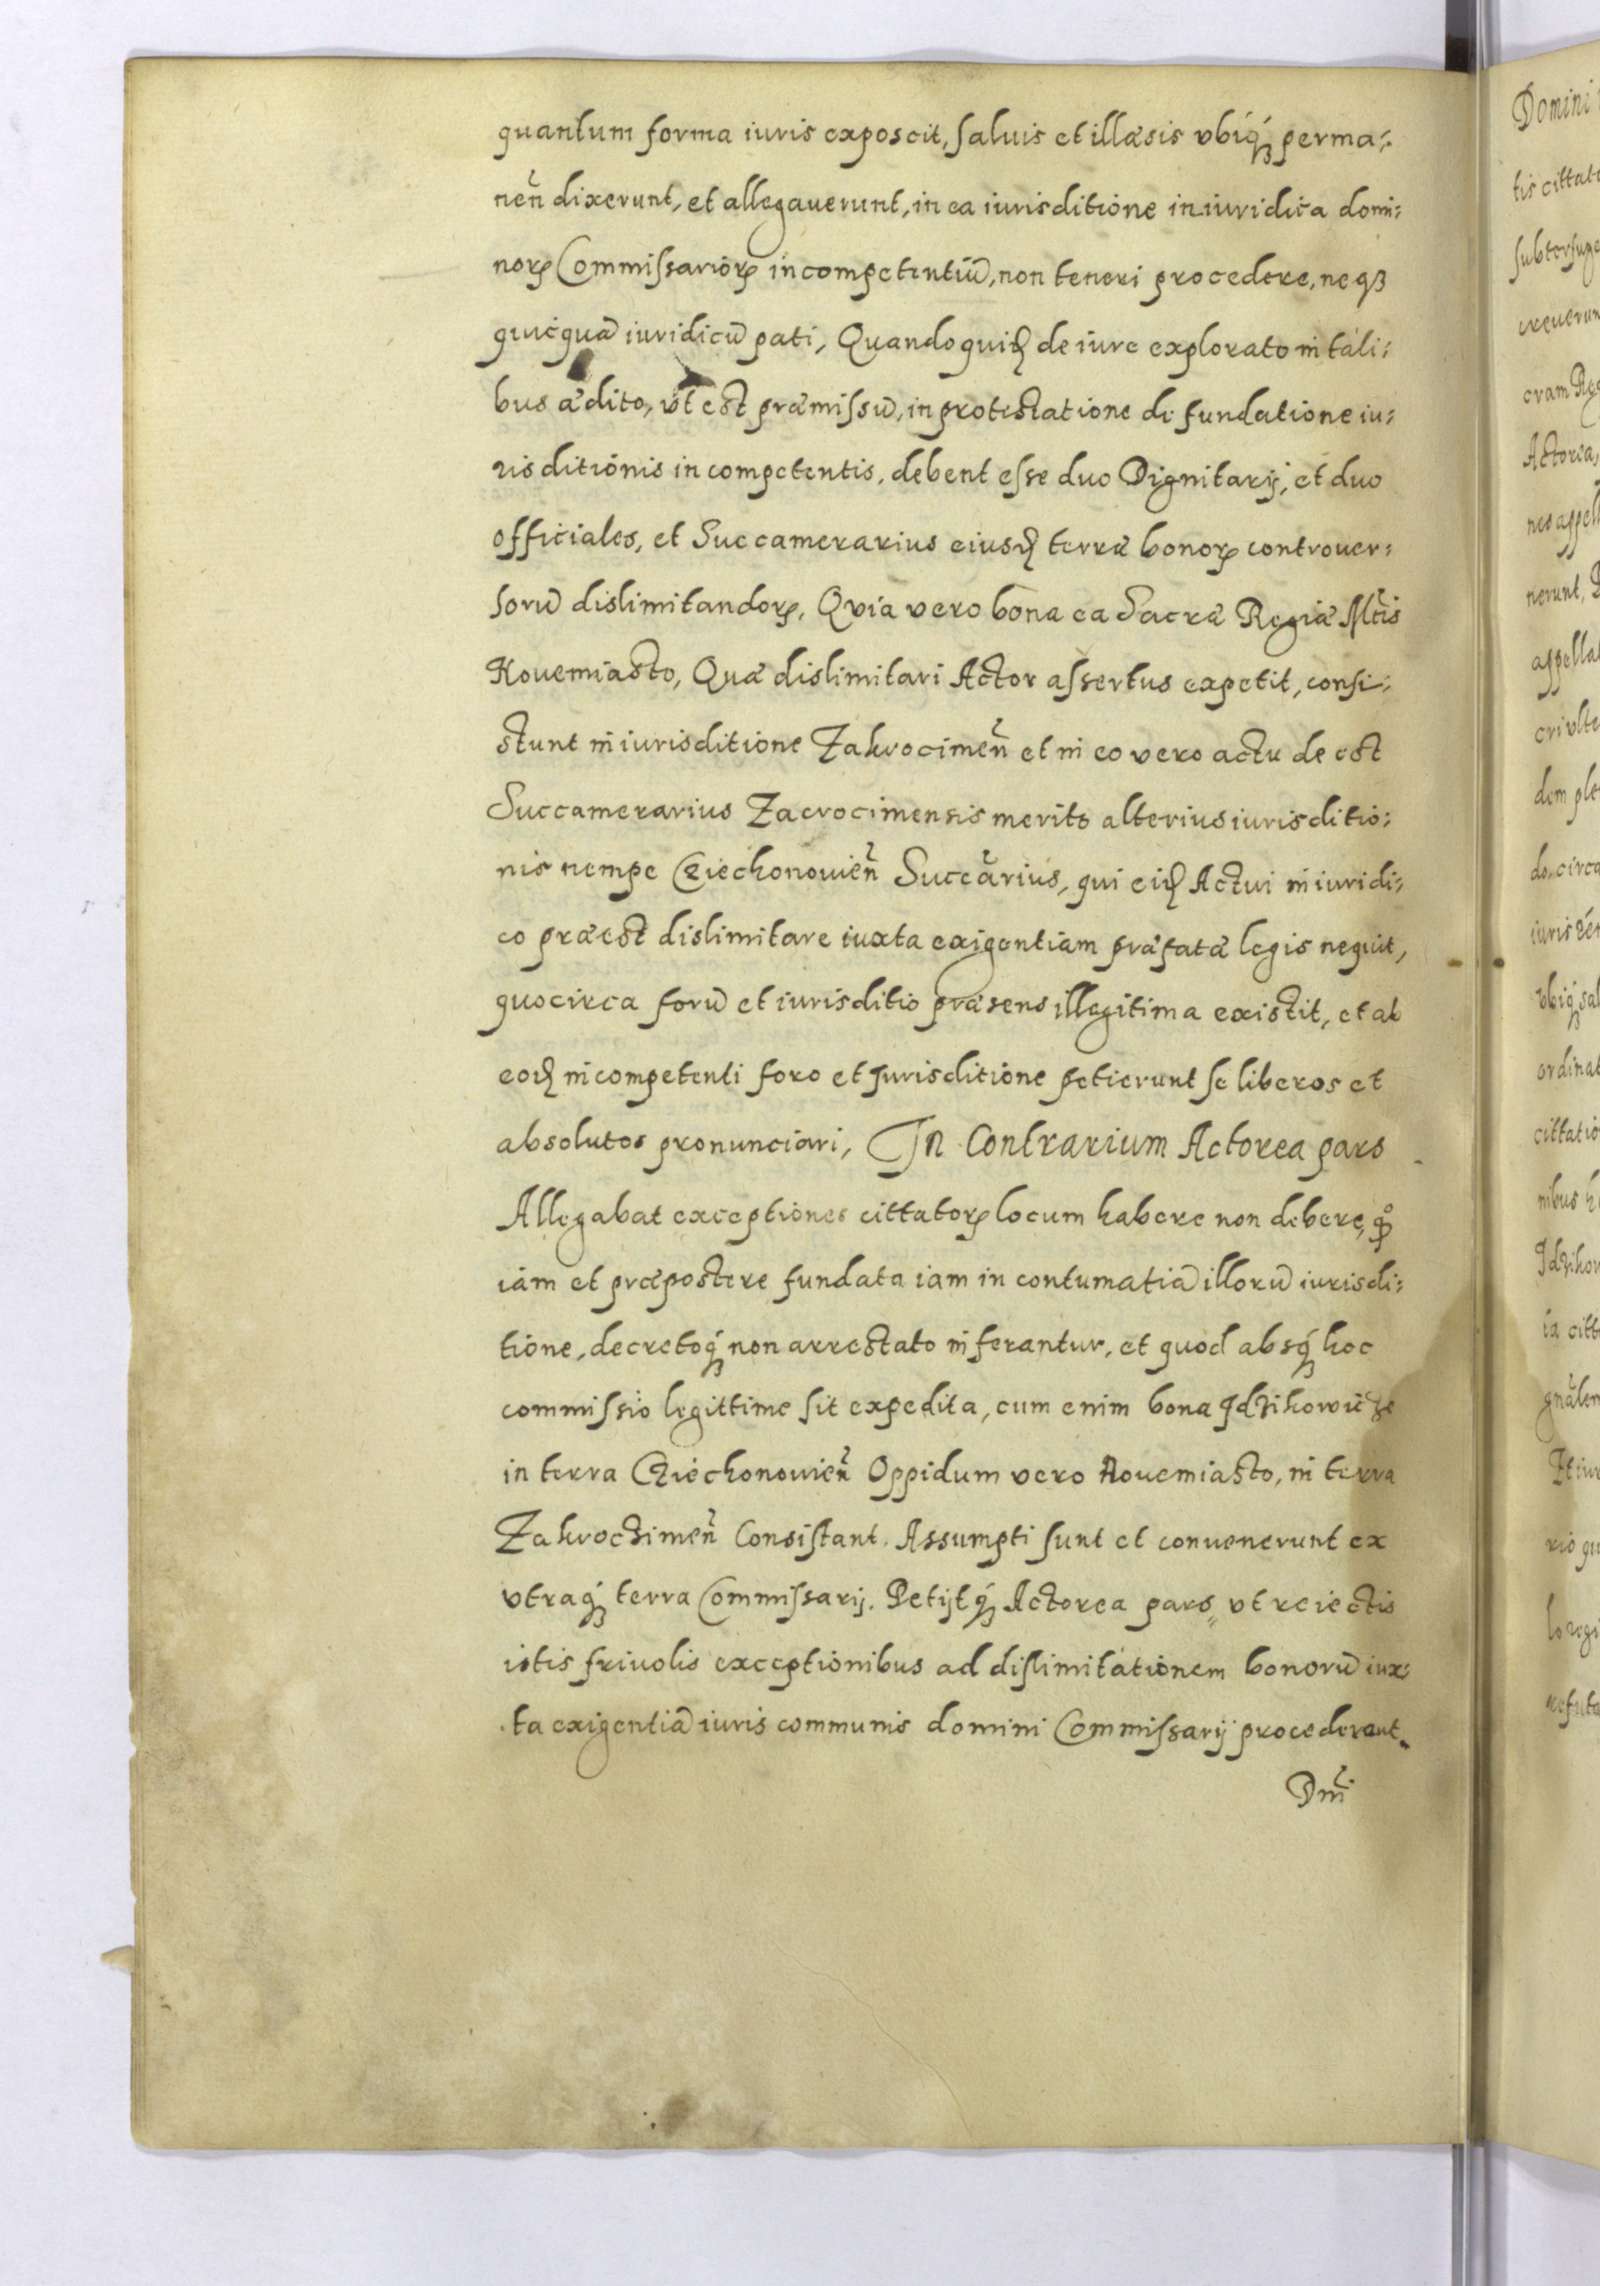 quantum forma iuris exposcit, saluis et illæsis vbíq́ꝫ perma⸗
neñ dixerunt, et allegauerunt, in ea iurisditione in iuridica domi⸗
norꝝ Commissariorꝝ incompetentiū, non teneri procedere, neqꝫ
quicquā iuridicū pati, Quandoquiđ de iure explorato in tali⸗
bus ædito, vt est præmissū, in protestatione de fundatione iu⸗
risditionis incompetentis, debent esse duo Dignitarij, et duo
officiales, et Succamerarius eiusđ terræ bonorꝝ controuer⸗
sorū dislimitandorꝝ. Qvia vero bona ea Sacræ Regiæ Mt̃is
Nouemiasto, Quæ dislimitari Actor assertus expetit, consi⸗
stunt in iurisditione Zakrocimeñ et in eo vero actu de est
Succamerarius Zacrocimensis merito alterius iurisditio⸗
nis nempe Cziechonouieñ Succãrius, qui eiđ Actui in iuridi⸗
co præest dislimitare iuxta exigentiam præfatæ legis nequit,
quocirca forū et iurisditio præsens illegitima existit, et ab
eođ incompetenti foro et Jurisditione petierunt se liberos et
absolutos pronunciari, In Contrarium Actorea pars
Allegabat exceptiones cittatorꝝ locum habere non debere, qͦ
iam et præpostere fundata iam in contumatiā illorū iurisdi⸗
tione, decretoq́ꝫ non arrestato inferantur, et quod absq́ꝫ hoc
commissio legittime sit expedita, cum enim bona Jdzikowicze
in terra Cziechonouieñ Oppidum vero Nouemiasto, in terra
Zakroczimeñ Consistant. Assumpti sunt et conuenerunt ex
vtraq́ꝫ terra Commissarij. Petijtq́ꝫ Actorea pars, vt reiectis
istis friuolis exceptionibus ad dislimitationem bonorū iux⸗
ta exigentiā iuris communis domini Commissarij procederent.
Dm̃i